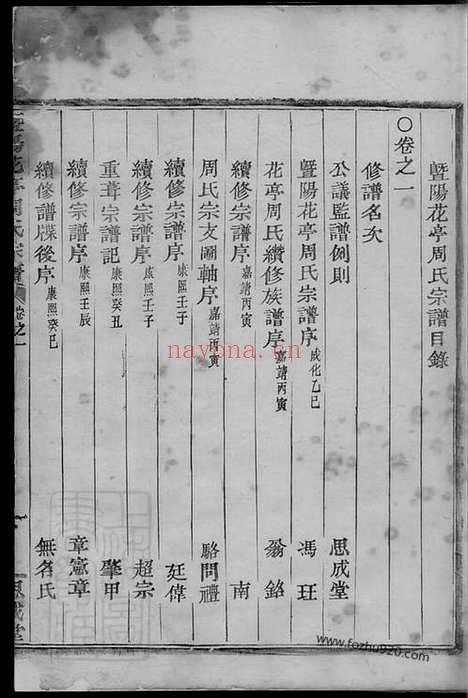 暨陽花亭周氏宗譜目錄
○卷之一
修譜名次
公議監譜例則 思成堂
暨陽花亭周氏宗譜序 成化乙巳 馮玨
花亭周氏纘修族譜序 嘉靖丙寅 翁銘
續修宗譜序 嘉靖丙寅 南
周氏宗支圖軸序 嘉靖丙寅 駱問禮
續修宗譜序 康熙壬子 廷偉
續修宗譜序 康熙壬子 超宗
重葺宗譜記 康熙癸丑 肇甲
續修宗譜序 康熙壬辰 章憲章
續修譜牒後序 康熙癸巳 無名氏
暨陽花亭周氏宗譜 卷之一 思成堂
nayona.cn
www.fozhu920.com